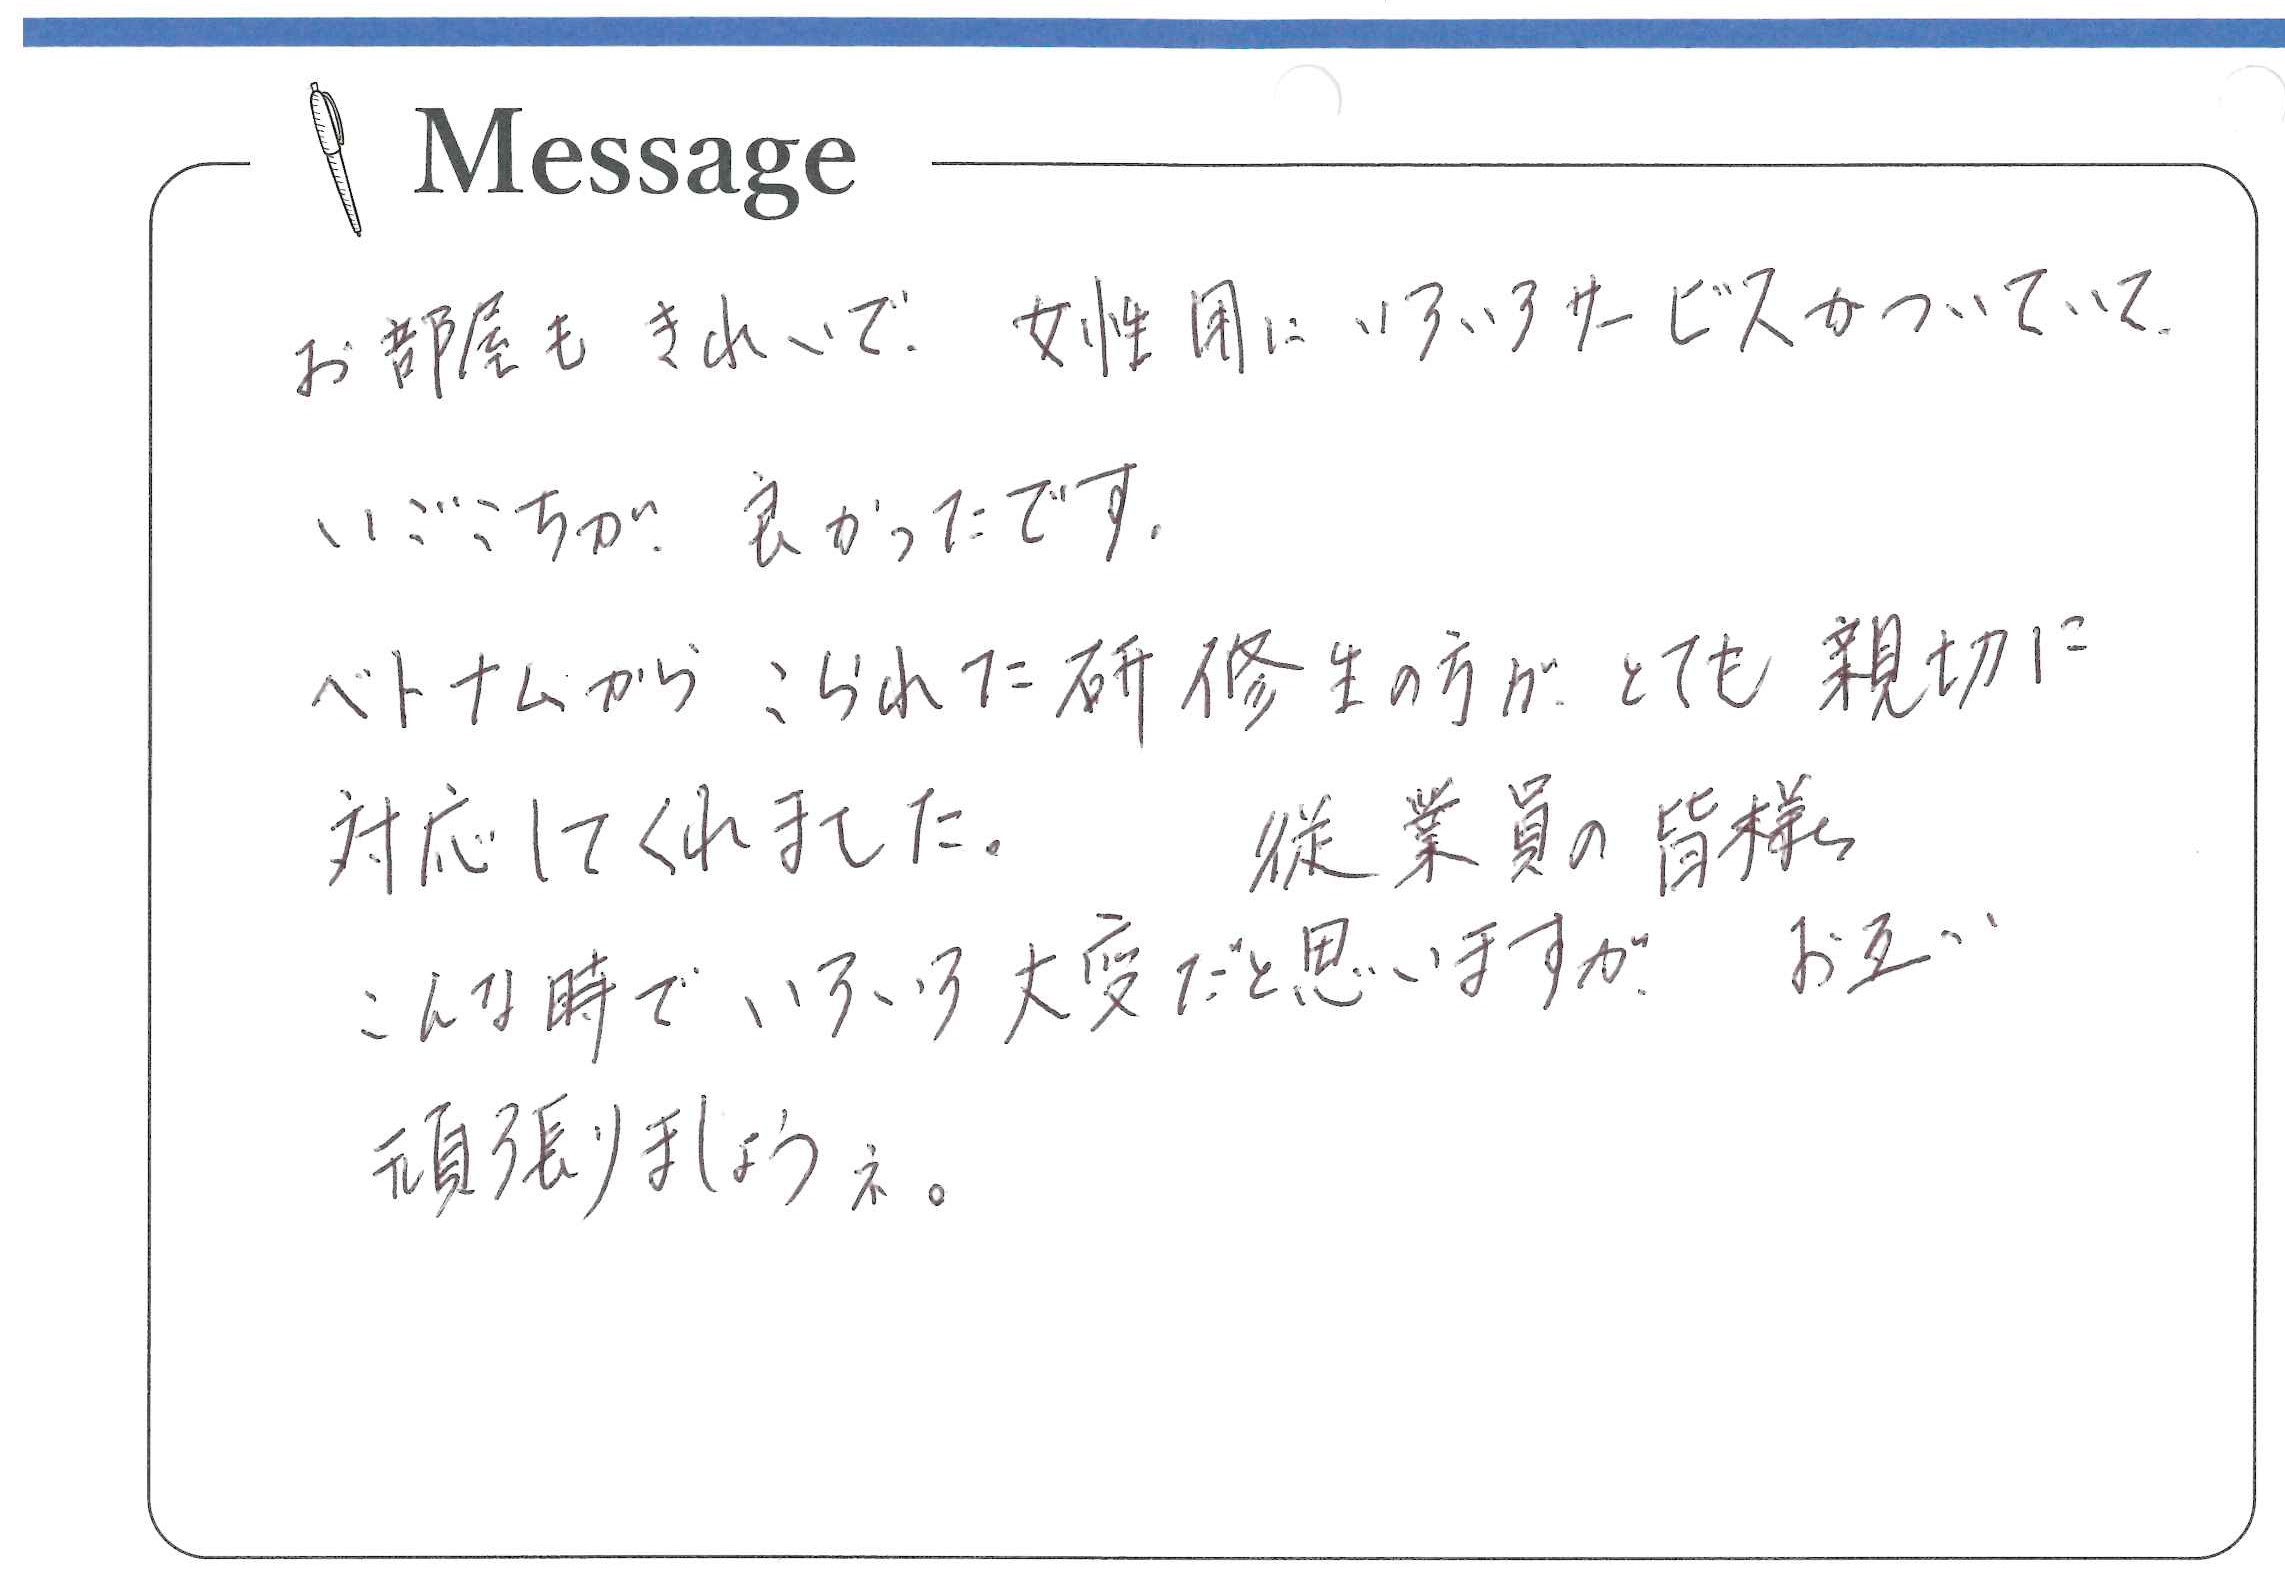 Message
お部屋もきれいで、女性用にいろいろサービスがついていて、
いごこちが、良かったです。
ベトナムからこられた研修生の方が、とても親切に
対応してくれました。 従業員の皆様も
こんな時でいろいろ大変だと思いますが、お互い
頑張りましょうネ。